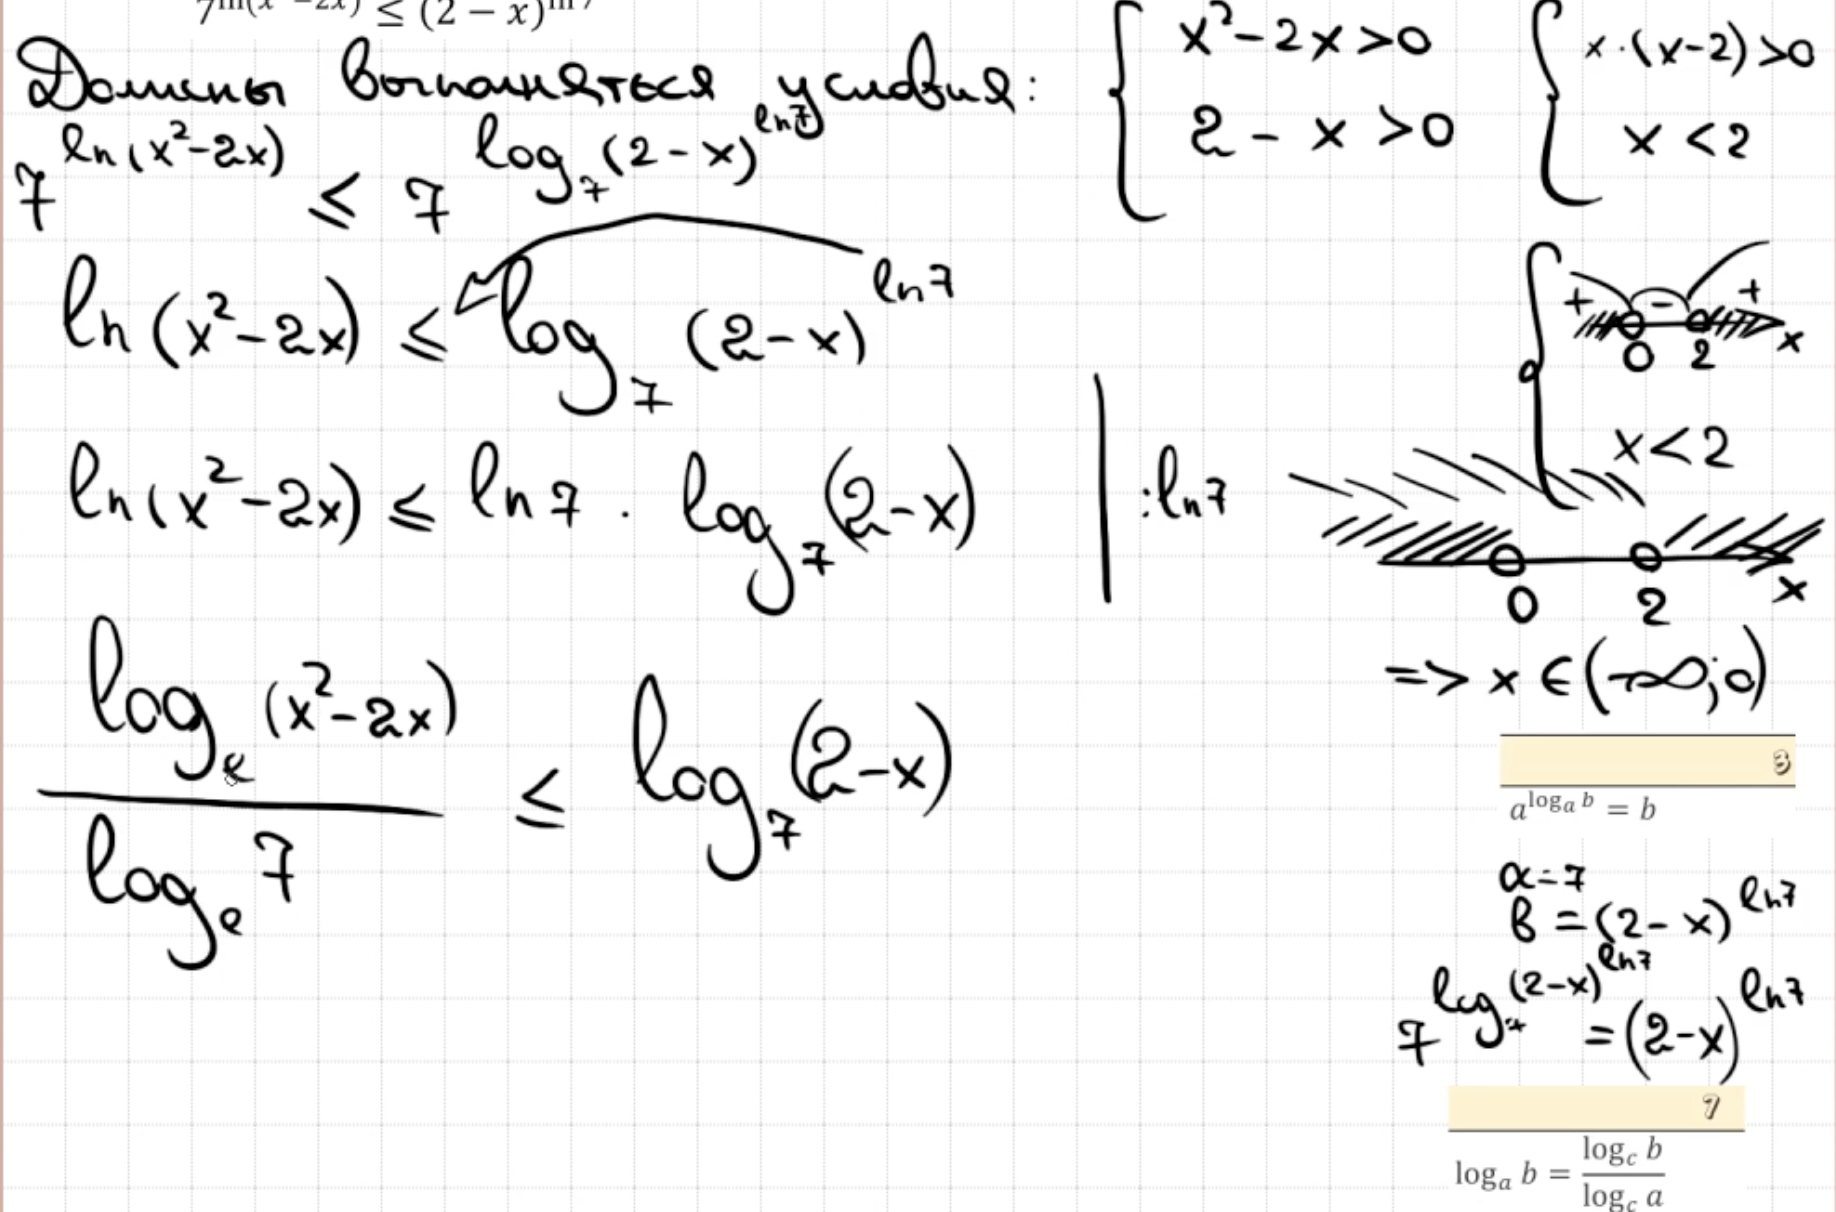 7^{ln(x²−2x)} ≤ (2 − x)^{ln 7}
Должны выполняться условия:
{ x²−2x>0
2−x>0
{ x·(x−2)>0
x<2
7^{ln(x²−2x)} ≤ 7^{log₇(2−x)^{ln7}}
ln(x²−2x) ≤ log₇(2−x)^{ln7}
+ − +
0 2 x
x<2
ln(x²−2x) ≤ ln7 · log₇(2−x) | :ln7
0 2 x
=> x ∈ (−∞;0)
log_e(x²−2x) / log_e 7 ≤ log₇(2−x)
3
a^{log_a b} = b
a=7
b=(2−x)^{ln7}
7^{log₇(2−x)^{ln7}} = (2−x)^{ln7}
7
log_a b = log_c b / log_c a